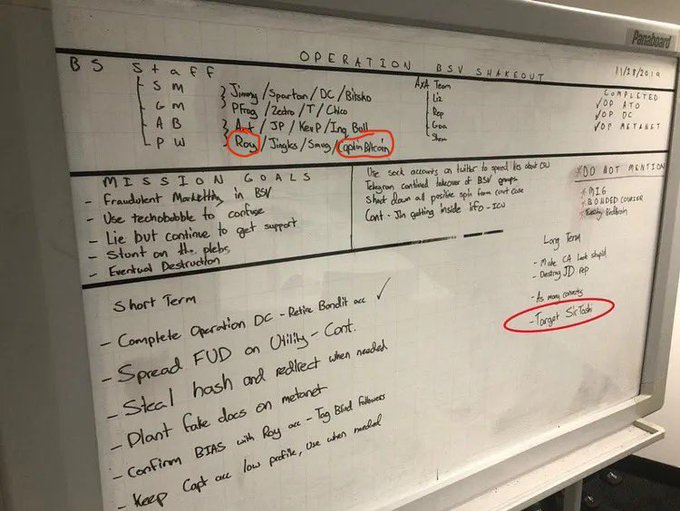 Panaboard
OPERATION BSV SHAKEOUT
11/28/2019
BS Staff
SM } Jimmy/Spartan/DC/Bitsko
GM PFrog/Zedro/T/Chico
AB } Art/JP/KevP/Ing Ball
PW Roy/Jingles/Savg/CaptinBitcoin
AxA Team
Liz
Rep
Goa
Shem
COMPLETED
✓OP ATO
✓OP DC
✓OP METANET
MISSION GOALS
- Fraudulent Marketing in BSV
- Use technobabble to confuse
- Lie but continue to get support
- Stunt on the plebs
- Eventual Destruction
Use sock accounts on twitter to spread lies about CSW
Telegram continued takeover of BSV groups
Shoot down all positive spin from court case
Cont - Jim getting inside info - ICU
*DO NOT MENTION
* MIG
* BONDED COURIER
* Tuesday
Short Term
- Complete Operation DC - Retire Bandit acc ✓
- Spread FUD on Utility - Cont.
- Steal hash and redirect when needed
- Plant fake docs on metanet
- Confirm BIAS with Roy acc - Tag Blind followers
- Keep Capt acc low profile, Use when needed
Long Term
- Make CA look stupid
- Destroy JD rep
- As many converts
- Target SirToshi